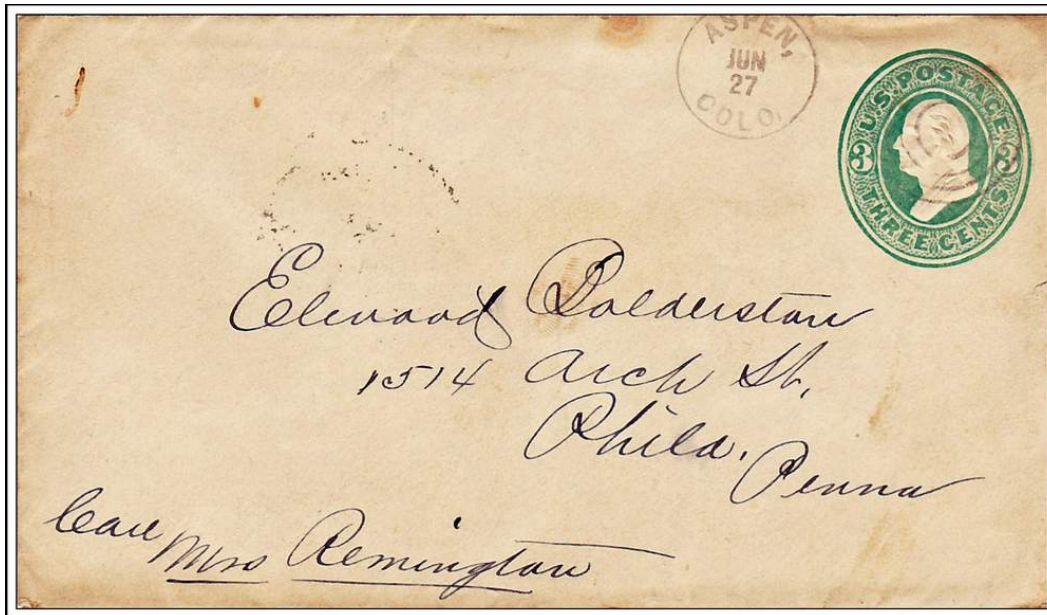 ASPEN,
JUN
27
COLO.
U.S. POSTAGE
3 3
THREE CENTS
Elwood Balderston
1514 Arch St,
Phila.
Penna
Care Mrs Remington